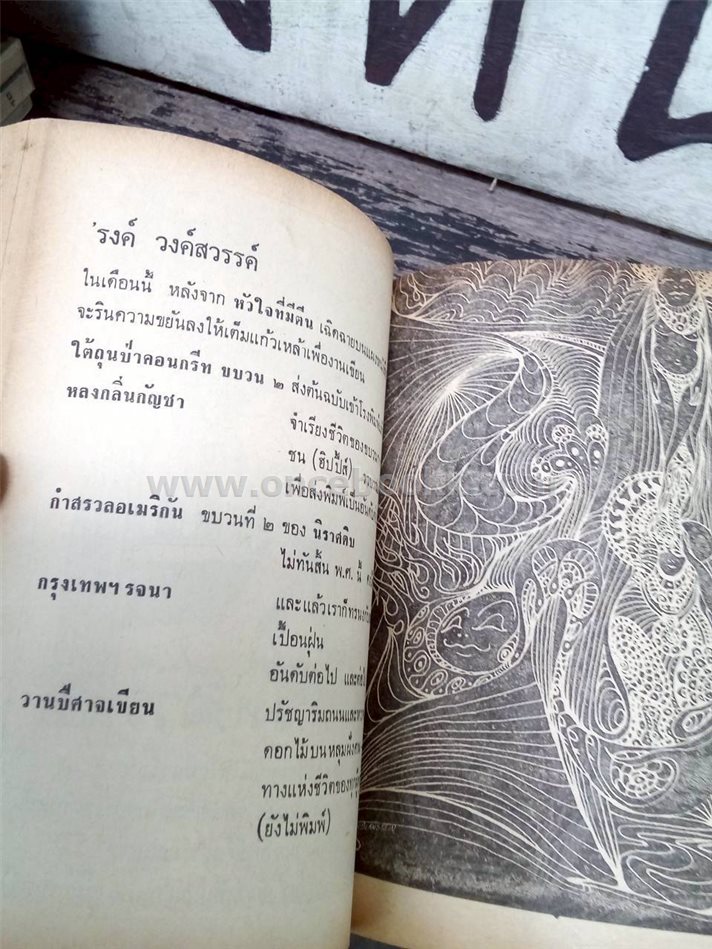 'รงค์ วงค์สวรรค์
ในเดือนนี้ หลังจาก หัวใจที่มีตีน เฉิดฉายบนแผง
จะรินความขยันลงให้เต็มแก้วเหล้าเพื่องานเขียน
ใต้ถุนป่าคอนกรีท ขบวน ๒ ส่งต้นฉบับเข้าโรงพิมพ์
หลงกลิ่นกัญชา
จำเรียงชีวิตของขบวน
ชน (ฮิปปี้ส์)
เพื่อส่งพิมพ์เป็นอันดับ
กำสรวลอเมริกัน ขบวนที่ ๒ ของ นิราศดิบ
ไม่ทันสิ้น พ.ศ. นี้
กรุงเทพฯ รจนา
และแล้วเราก็ทรนง
เปื้อนฝุ่น
อันดับต่อไป และ
วานปีศาจเขียน
ปรัชญาริมถนนและ
ดอกไม้บนหลุมฝัง
ทางแห่งชีวิตของ
(ยังไม่พิมพ์)